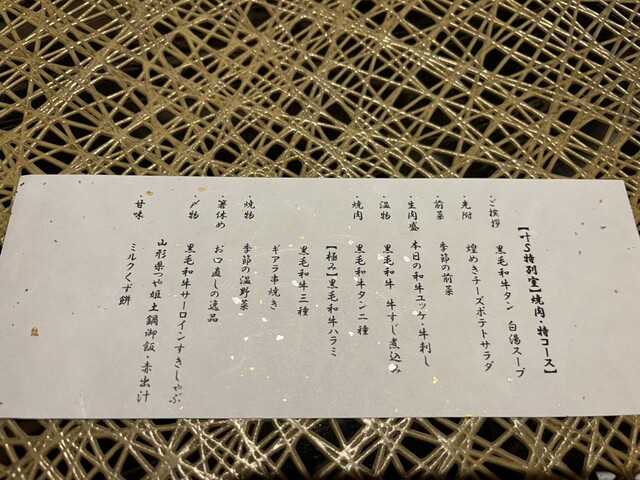 【叶S特別室】焼肉・特コース】
・ご挨拶　黒毛和牛タン　白湯スープ
・先附　煌めきチーズポテトサラダ
・前菜　季節の前菜
・生肉盛　本日の和牛ユッケ・牛刺し
・温物　黒毛和牛　牛すじ煮込み
・焼肉　黒毛和牛タン二種
【極み】黒毛和牛ハラミ
黒毛和牛三種
ギアラ串焼き
・焼物　季節の温野菜
・箸休め　お口直しの逸品
・〆物　黒毛和牛サーロインすきしゃぶ
山形県つや姫土鍋御飯・赤出汁
・甘味　ミルクくず餅